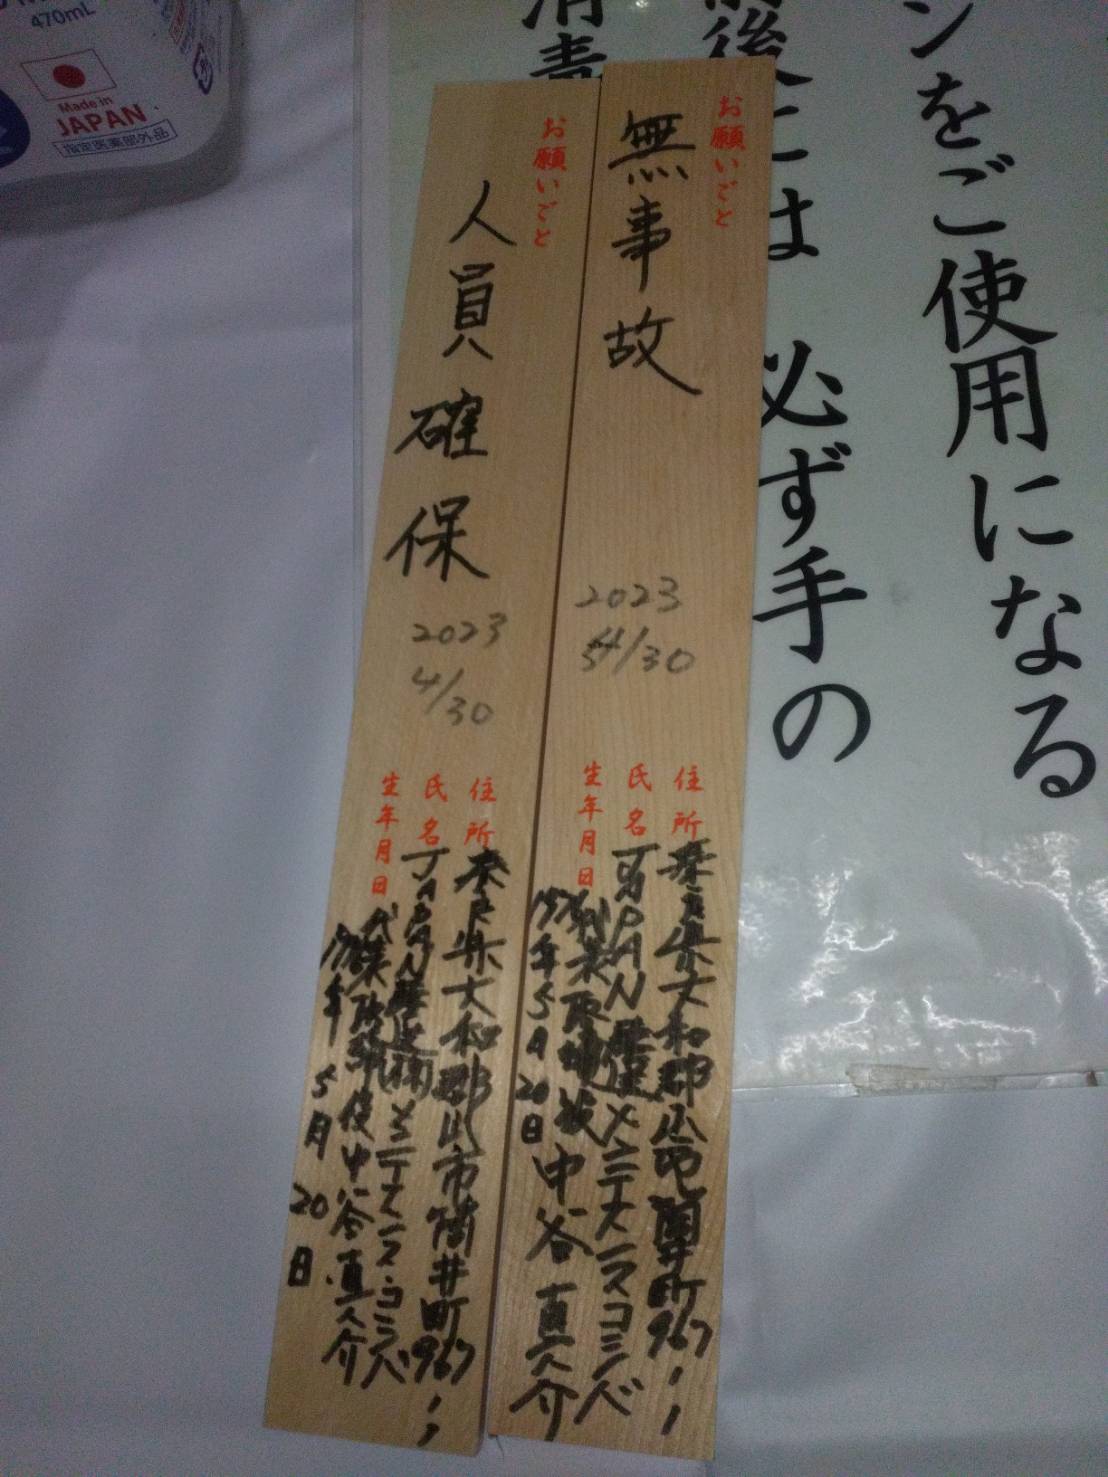 470mL
Made in
JAPAN
指定医薬部外品
ンをご使用になる
前後には 必ず手の
消毒
お願いごと
無事故
2023
4/30
住所
奈良県大和郡山市筒井町967-1
氏名
JAPAN 建メンテナンスコンベ
代表取締役 中谷真介
生年月日
年5月20日
お願いごと
人員確保
2023
4/30
住所
奈良県大和郡山市筒井町967-1
氏名
JAPAN メンテナンス・コンベ
代表取締役中谷真介
生年月日
年5月20日